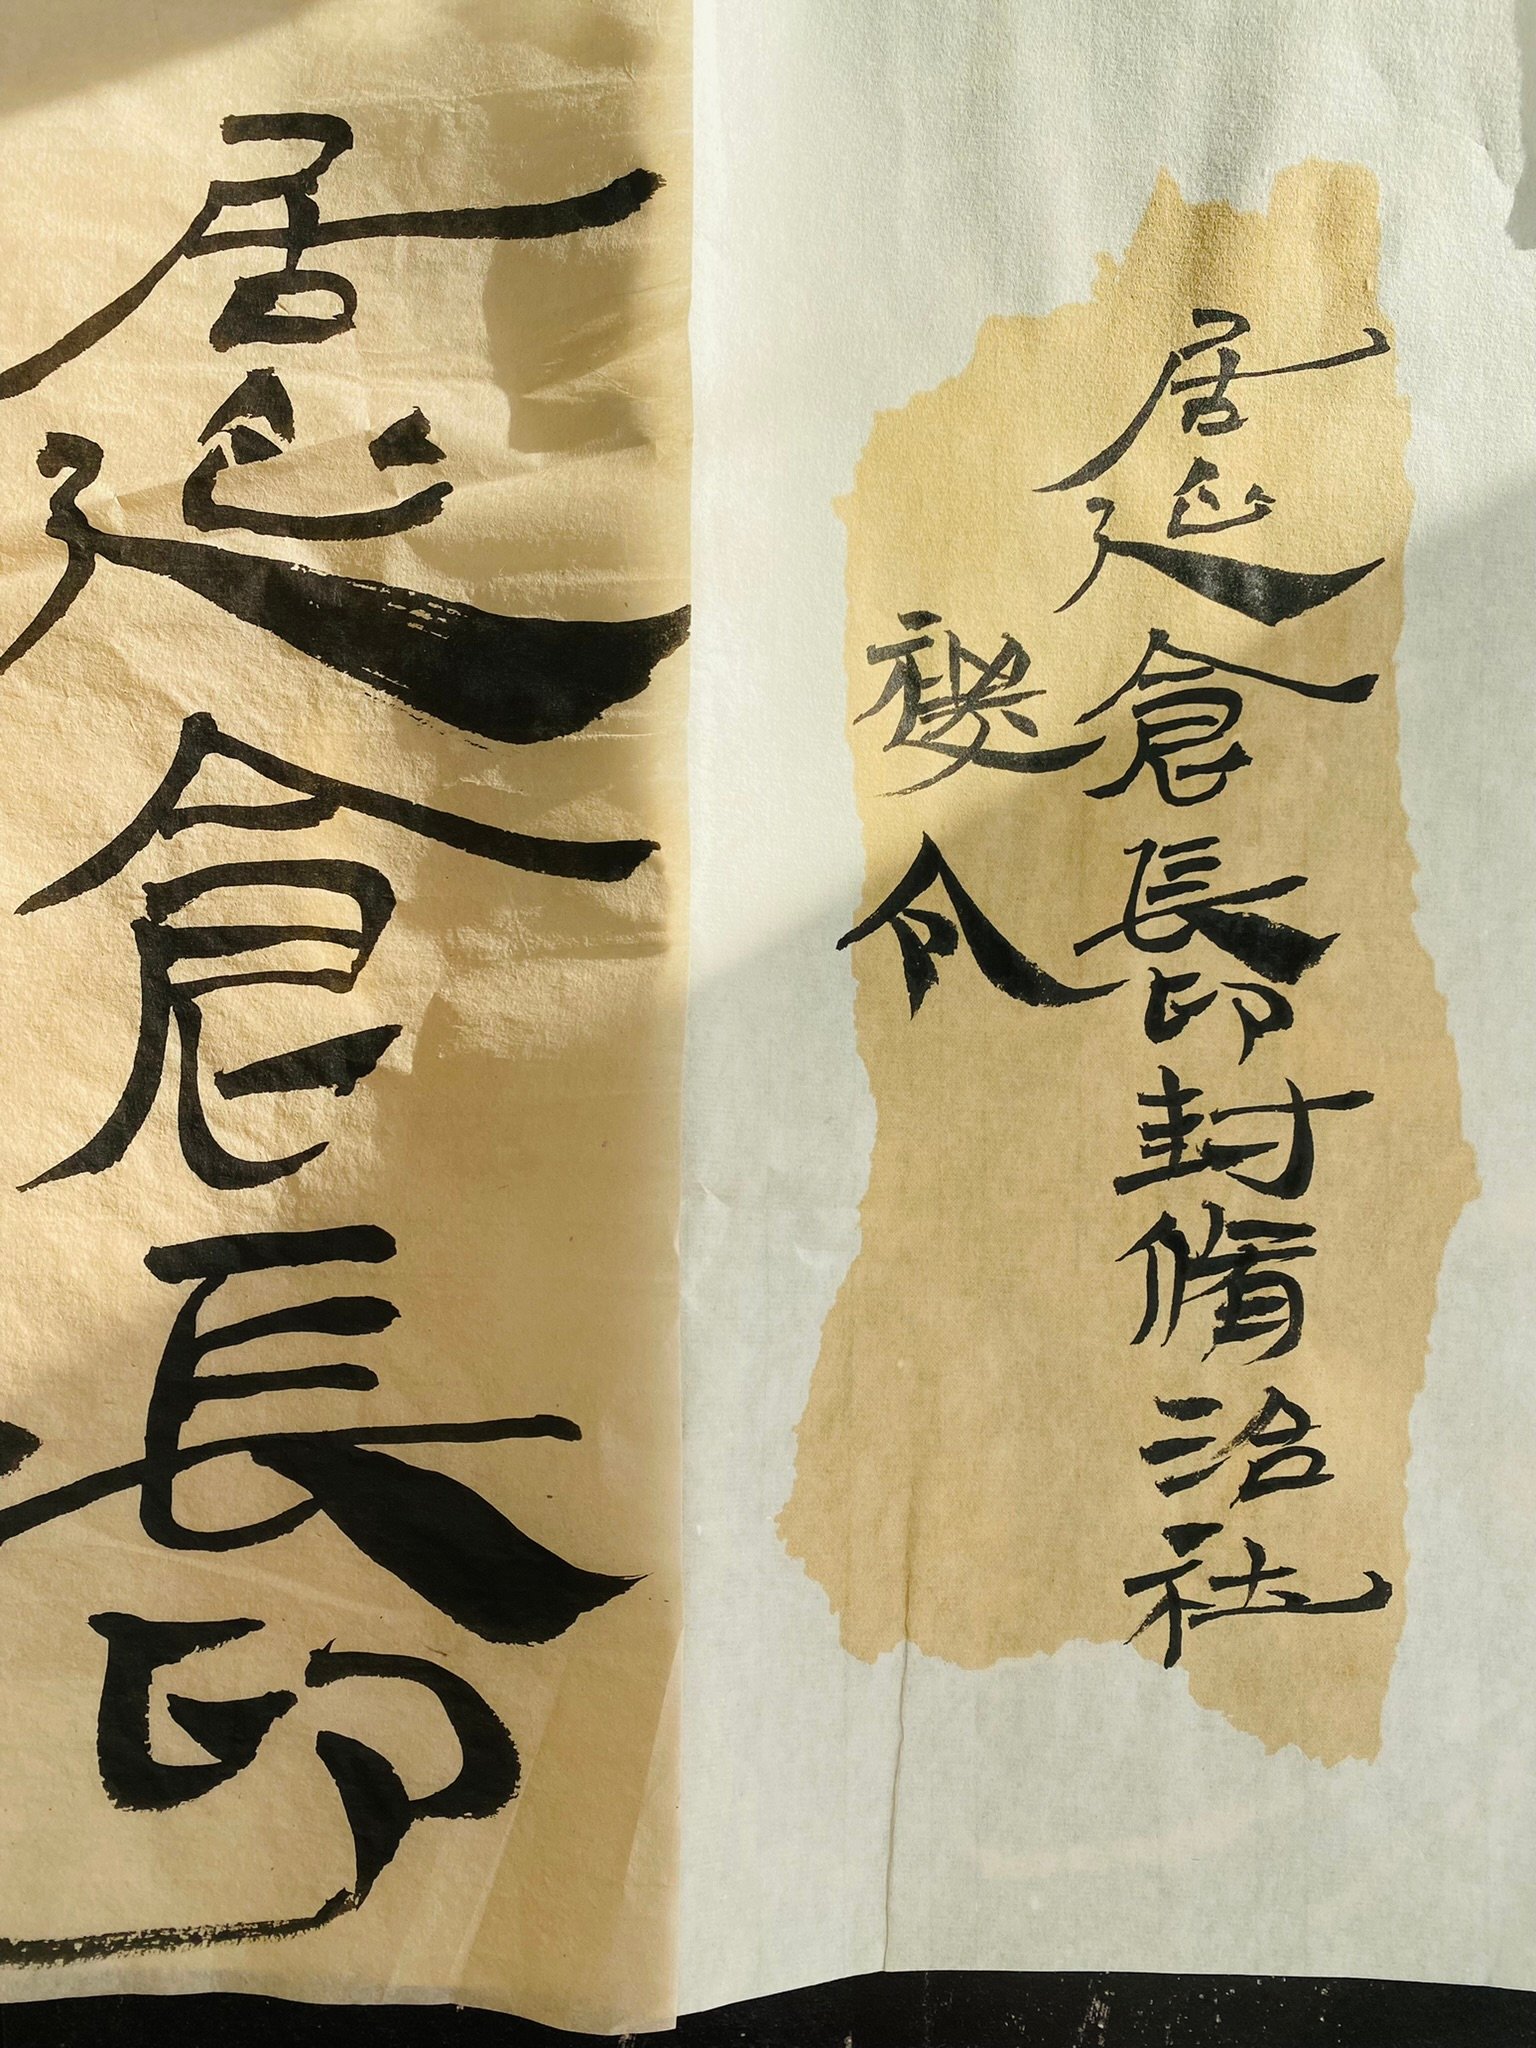 居延倉長印封脩治社
禝令
居延倉長印